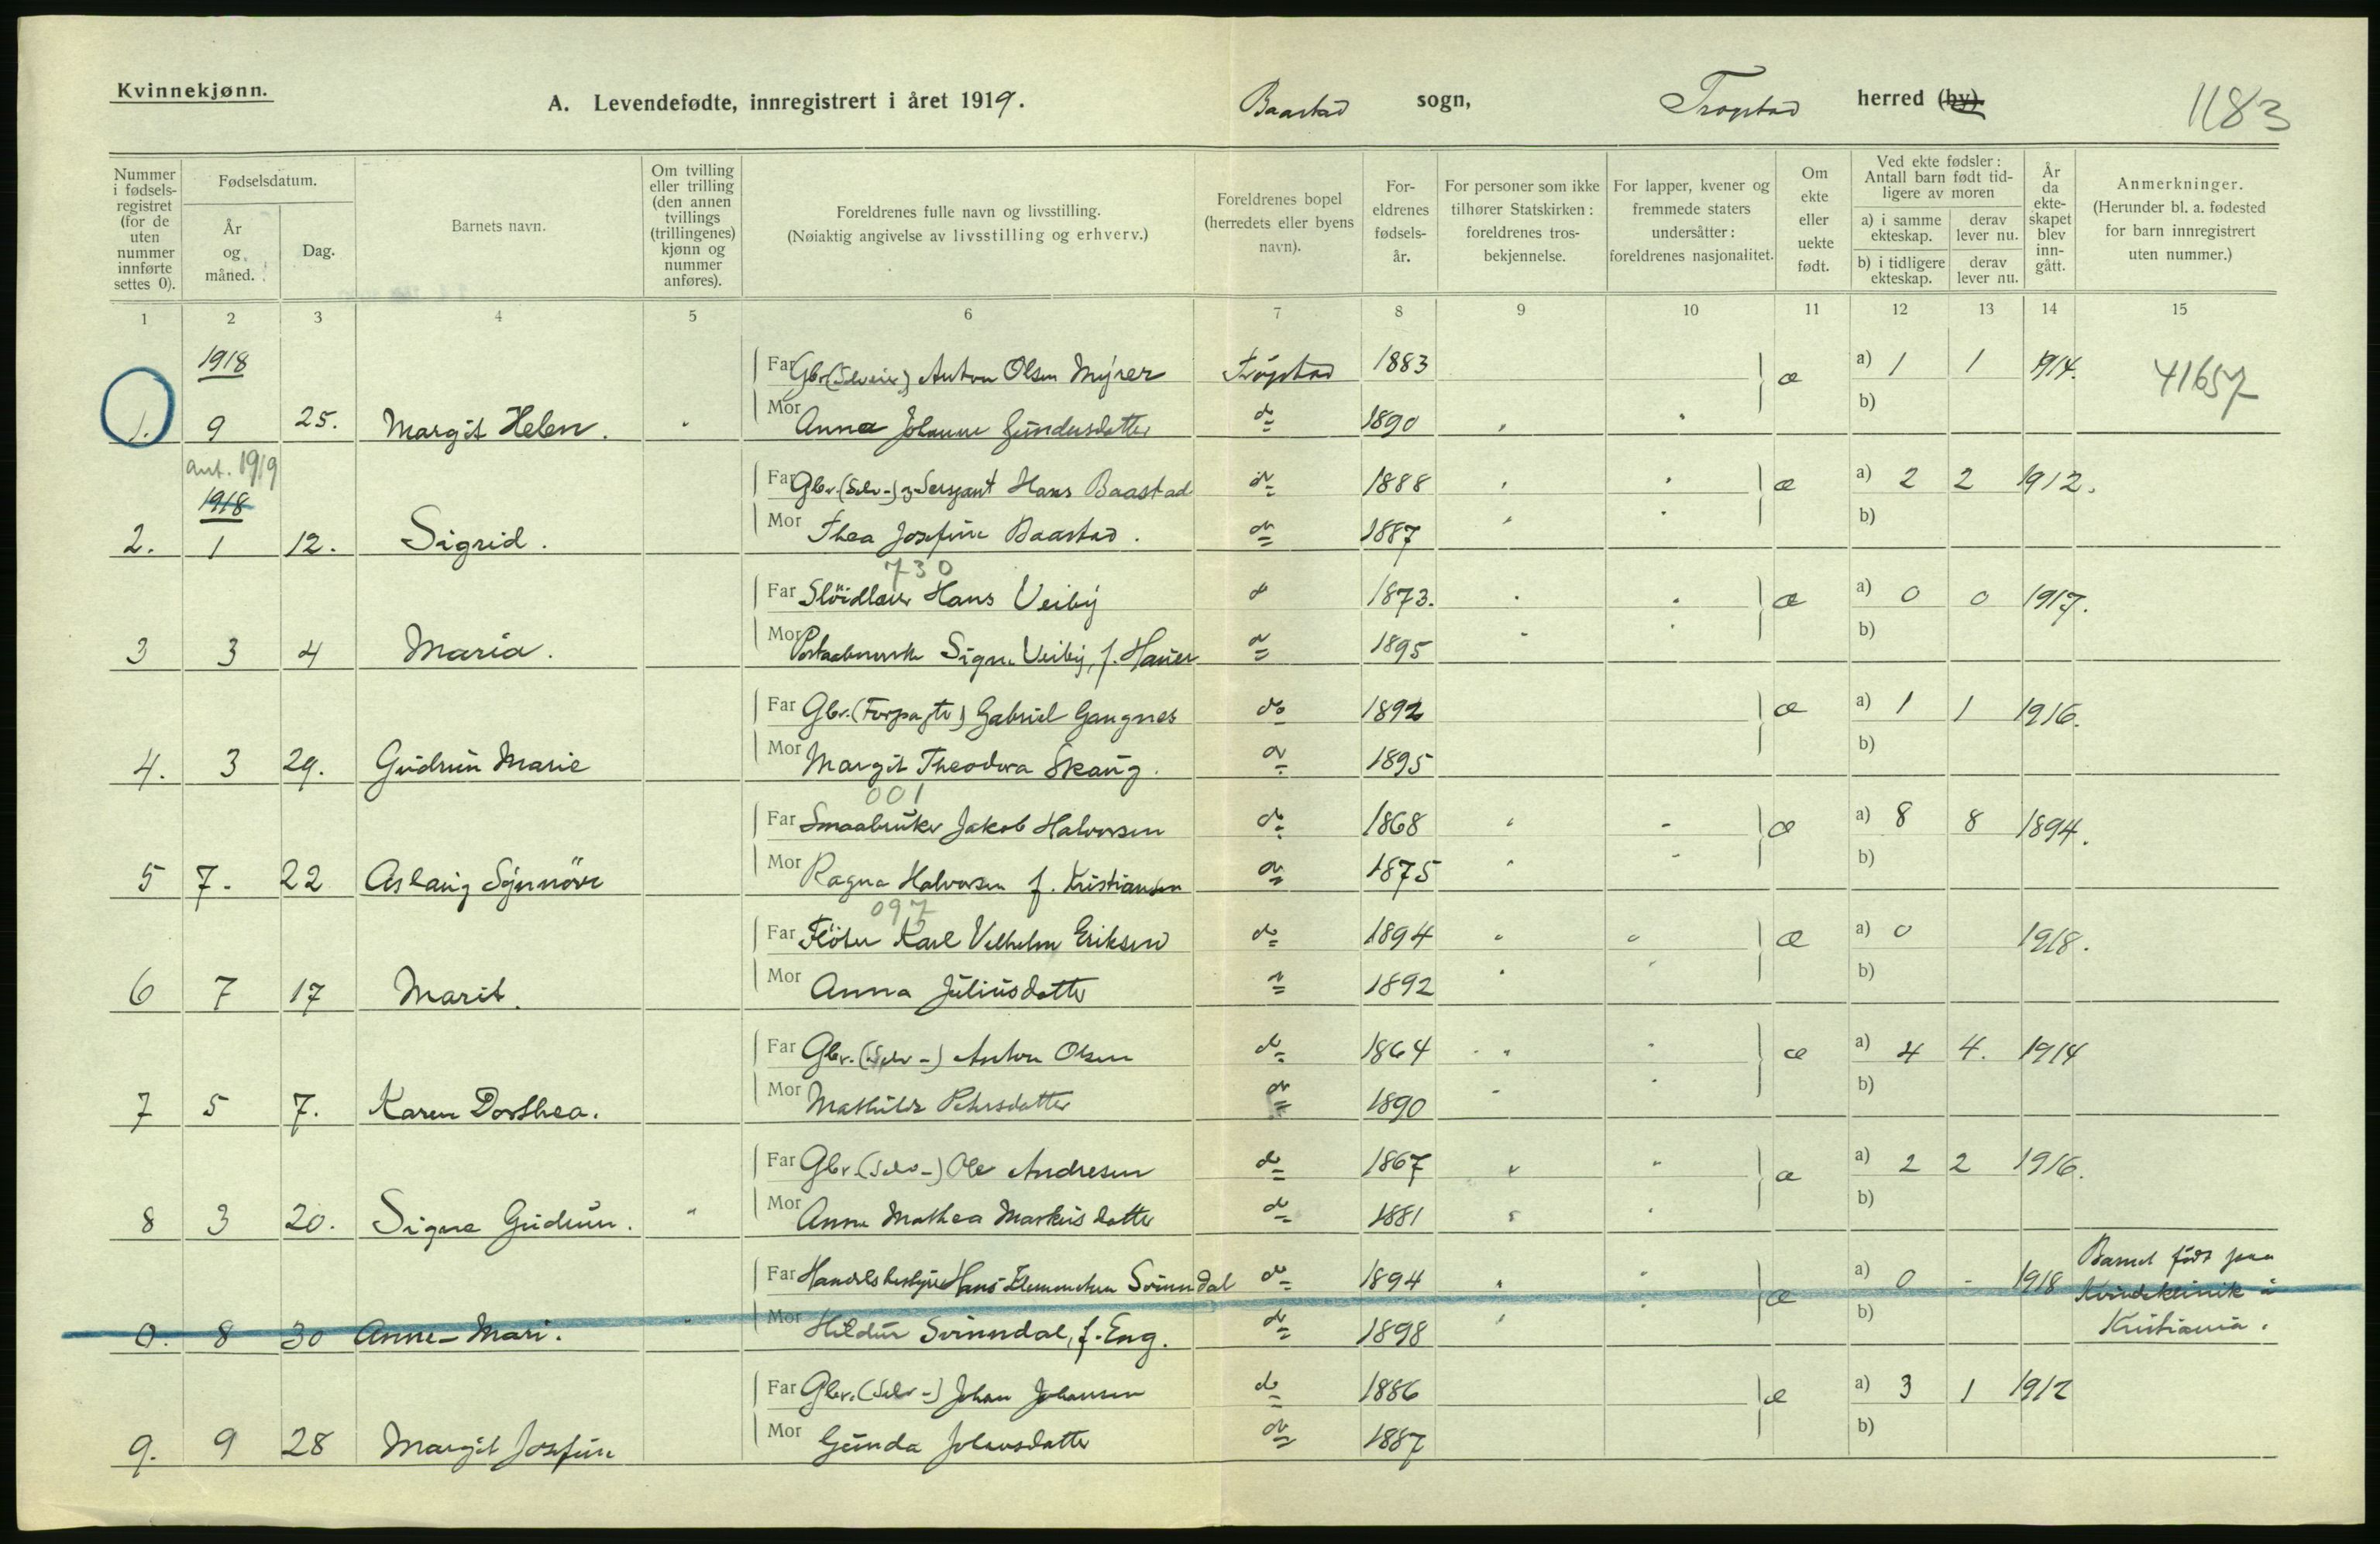 Kvinnekjønn.
A. Levendefødte, innregistrert i året 1919.
Baastad sogn, Trøgstad herred (by)
1183
Nummer i fødsels-registret (for de uten nummer innførte settes 0).
Fødselsdatum.
År og måned.
Dag.
Barnets navn.
Om tvilling eller trilling (den annen tvillings (trillingenes) kjønn og nummer anføres).
Foreldrenes fulle navn og livsstilling.
(Nøiaktig angivelse av livsstilling og erhverv.)
Foreldrenes bopel (herredets eller byens navn).
For-eldrenes fødsels-år.
For personer som ikke tilhører Statskirken: foreldrenes tros-bekjennelse.
For lapper, kvener og fremmede staters undersåtter: foreldrenes nasjonalitet.
Om ekte eller uekte født.
Ved ekte fødsler: Antall barn født tid-ligere av moren
a) i samme ekteskap.
derav lever nu.
b) i tidligere ekteskap.
derav lever nu.
År da ekte-skapet blev inn-gått.
Anmerkninger.
(Herunder bl. a. fødested for barn innregistrert uten nummer.)
1 2 3 4 5 6 7 8 9 10 11 12 13 14 15
1918
Far Gbr. (Selveier) Anton Olsen Myrer Trøgstad 1883 æ a) 1 1 1914. 41657
1. 9 25. Margit Helen. Mor Anna Johanne Gundersdatter do 1890 b)
ant. 1919
1918
Far Gbr. (Selv-) og Sersjant Hans Baastad do 1888 æ a) 2 2 1912.
2. 1 12. Sigrid. Mor Thea Josefine Baastad. do 1887 b)
730
Far Slöidlærer Hans Veiby do 1873. æ a) 0 0 1917.
3 3 4 Maria. Mor Signe Veiby, f. do 1895 b)
Far Gbr. (Forpagter) Gabriel Gangnes do 1892 æ a) 1 1 1916.
4. 3 29. Gudrun Marie Mor Margit Theodora Skaug. do 1895 b)
001
Far Smaabruker Jakob Halvorsen do 1868 æ a) 8 8 1894.
5 7. 22 Aslaug Synnöve Mor Ragna Halvorsen f. Kristiansen do 1875 b)
097
Far Flöter Karl Vilhelm Eriksen do 1894 æ a) 0 1918.
6 7 17 Marit. Mor Anna Juliusdatter do 1892 b)
Far Gbr. (Selv-) Anton Olsen do 1864 æ a) 4 4. 1914
7 5 7. Karen Dorthea. Mor Mathilde Pedersdatter do 1890 b)
Far Gbr. (Selv-) Ole Andresen do 1867 æ a) 2 2 1916.
8 3 20. Signe Gudrun. Mor Anne Mathea Markusdatter do 1881 b)
Far Handelsbestyrer Hans Svinndal do 1894 æ a) 0 - 1918 Barnet født paa
Kvindeklinik i
0. 8 30 Anne-Mari. Mor Hildur Svinndal, f. Eng. do 1898 b) Kristiania.
Far Gbr. (Selv-) Johan Johansen do 1886 æ a) 3 1 1912
9. 9 28 Margit Josefine Mor Gunda Johansdatter do 1887 b)